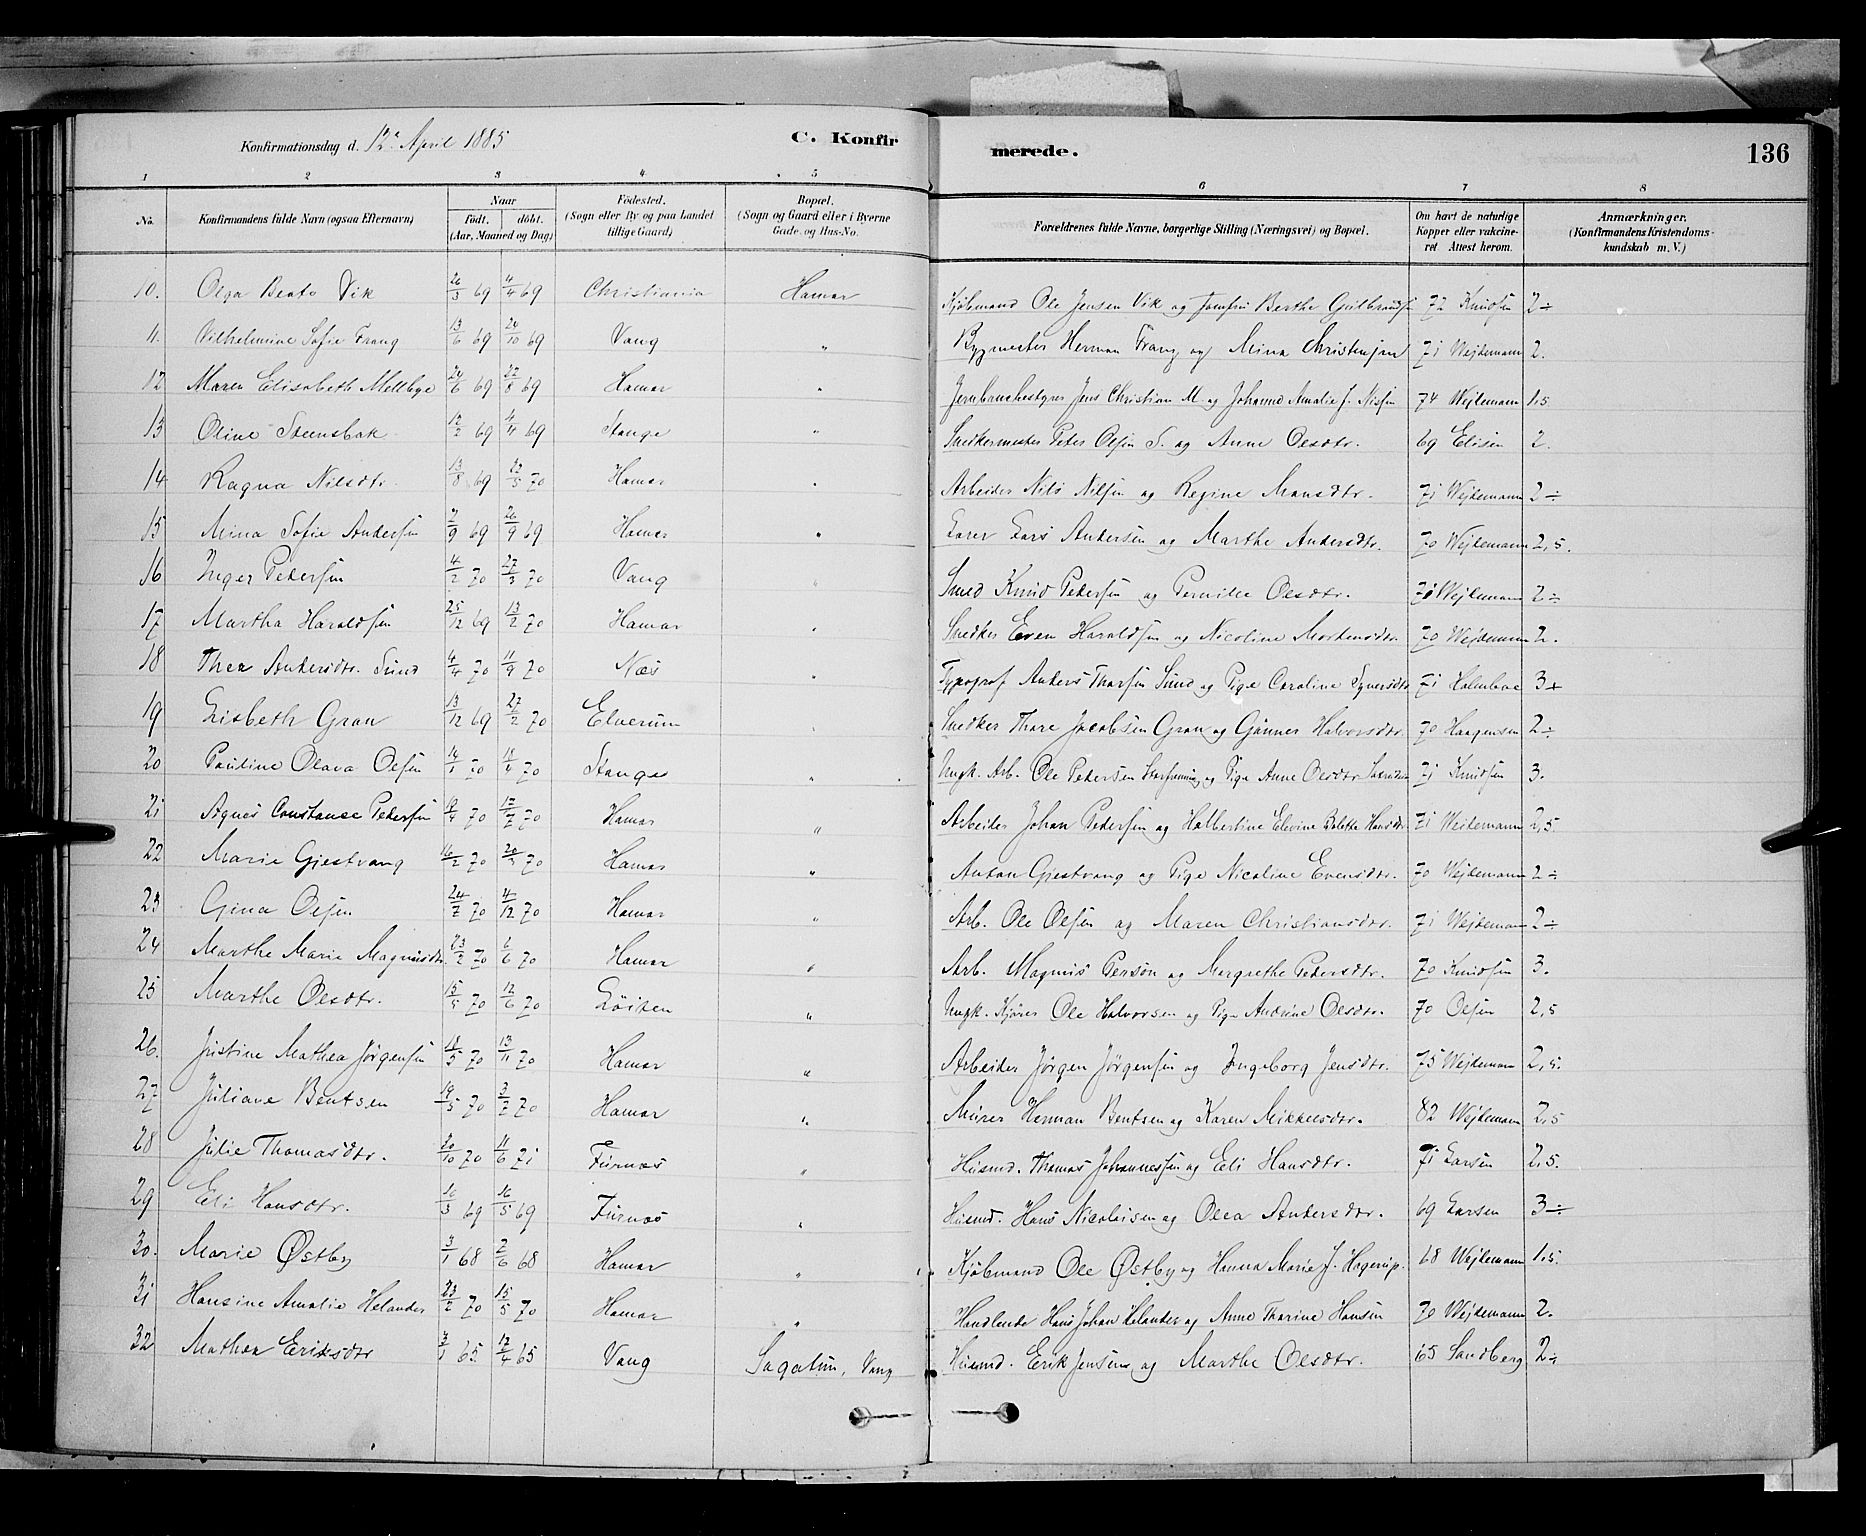 Konfirmationsdag d. 12te April 1885 C. Konfirmerede. 136
1 2 3 4 5 6 7 8
No. Konfirmandens fulde Navn (ogsaa Efternavn) Naar født. døbt. (Aar, Maaned og Dag) Fødested. (Sogn eller By og paa Landet tillige Gaard) Bopæl. (Sogn og Gaard eller i Byerne Gade og Hus-No. Forældrenes fulde Navne, borgerlige Stilling (Næringsvei) og Bopæl. Om havt de naturlige Kopper eller vakcineret. Attest herom. Anmærkninger. (Konfirmandens Kristendomskundskab m. V.)
10. Olga Beate Vik 26/3 69 4/4 69 Christiania Hamar Kjøbmand Ole Jensen Vik og Jomfru Berthe Gulbrandsen 72 Knudsen 2÷
11. Vilhelmine Sofie Frang 13/6 69 24/10 69 Vang " Bygmester Herman Frang og Mina Christensen 71 Wejdemann 2.
12 Maren Elisabeth Mellbye 24/6 69 22/8 69 Hamar " Jernbanebestyrer Jens Christian M. og Johanne Amalie f. Nissen 74 Wejdemann 1,5.
13 Oline Steensbak 12/2 69 4/4 69 Stange " Snedkermester Peter Olsen S. og Anne Olsdtr. 69 Elisen 2.
14 Ragna Nilsdtr. 13/8 69 22/5 70 Hamar " Arbeider Nils Nilsen og Regine Mansdtr. 71 Wejdemann 2÷
15 Mina Sofie Andersen 2/9 69 26/9 69 Hamar " Lars Andersen og Marthe Andersdtr. 70 Wejdemann 2,5.
16 Inger Pedersen 4/2 70 27/3 70 Vang " Smed Knud Pedersen og Pernille Olsdtr. 70 Wejdemann 2÷
17 Martha Haraldsen 25/12 69 13/2 70 Hamar " Snedker Even Haraldsen og Nicoline Mortensdtr. 70 Wejdemann 2.
18 Thea Andersdtr. Sund 4/4 70 11/9 70 Næs " Typograf Anders Thorsen Sund og Pige Caroline Syversdtr. 71 Holmboe 3+
19 Lisbeth Gran 13/12 69 27/2 70 Elverum " Snedker Thore Jacobsen Gran og Gunner Halvorsdtr. 70 Haagensen 2÷
20 Pauline Olava Olsen 14/1 70 18/4 70 Stange " Ungk. Arb. Ole Pedersen og Pige Anne Olsdtr. 71 Knudsen 3.
21 Agnes Constance Pedersen 19/4 70 17/7 70 Hamar " Arbeider Johan Pedersen og Halbertine Elevine Bolette Hansdtr. 71 Wejdemann 2,5.
22 Marie Gjestvang 16/2 70 20/3 70 Hamar " Anton Gjestvang og Pige Nicoline Evensdtr. 70 Wejdemann 2÷
23 Gina Olsen 24/7 70 4/12 70 Hamar " Arb. Ole Olsen og Maren Christiansdtr. 71 Wejdemann 2÷
24 Marthe Marie Magnusdtr. 23/2 70 6/6 70 Hamar " Arb. Magnus Person og Margrethe Pedersdtr. 70 Knudsen 3.
25 Marthe Olsdtr. 15/5 70 12/6 70 Løiten " Ungk. Kjører Ole Halvorsen og Pige Andrine Olsdtr. 70 Olsen 2,5
26. Justine Mathea Jørgensen 18/5 70 13/11 70 Hamar " Arbeider Jørgen Jørgensen og Ingeborg Jensdtr. 75 Wejdemann 2,5.
27 Juliane Bentsen 19/5 70 3/7 70 Hamar " Murer Herman Bentsen og Karen Mikkelsdtr. 82 Wejdemann 2,5
28 Julie Thomasdtr. 20/10 70 11/6 71 Furnæs " Husmd. Thomas Johannessen og Eli Hansdtr. 71 Larsen 2,5.
29 Eli Hansdtr. 10/3 69 16/5 69 Furnæs " Husmd. Hans Nicolaisen og Olea Andersdtr. 69 Larsen 3÷
30. Marie Østby 3/1 68 2/6 68 Hamar " Kjøbmand Ole Østby og Hanna Marie f. Hagerup. 68 Wejdemann 1,5.
31 Hansine Amalie Helander 23/2 70 15/5 70 Hamar " Handlende Hans Johan Helander og Anne Thorine Hansen 70 Wejdemann 2.
32 Mathea Eriksdtr 3/1 65. 17/4 65 Vang Sagatun, Vang Husmd. Erik Jensen og Marthe Olsdtr. 65 Sandberg 2÷